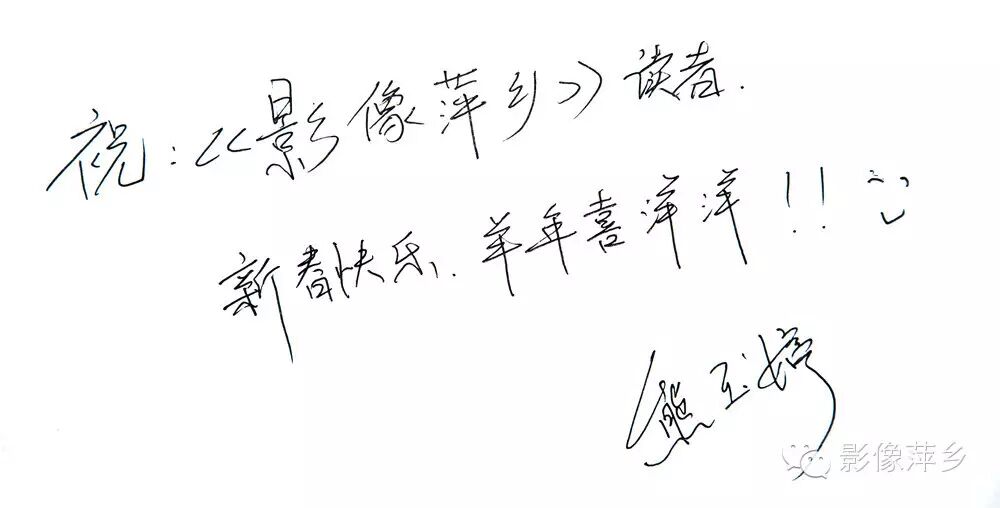 祝:《影像萍乡》读者.
新春快乐.羊年喜洋洋!!
熊玉婷
影像萍乡